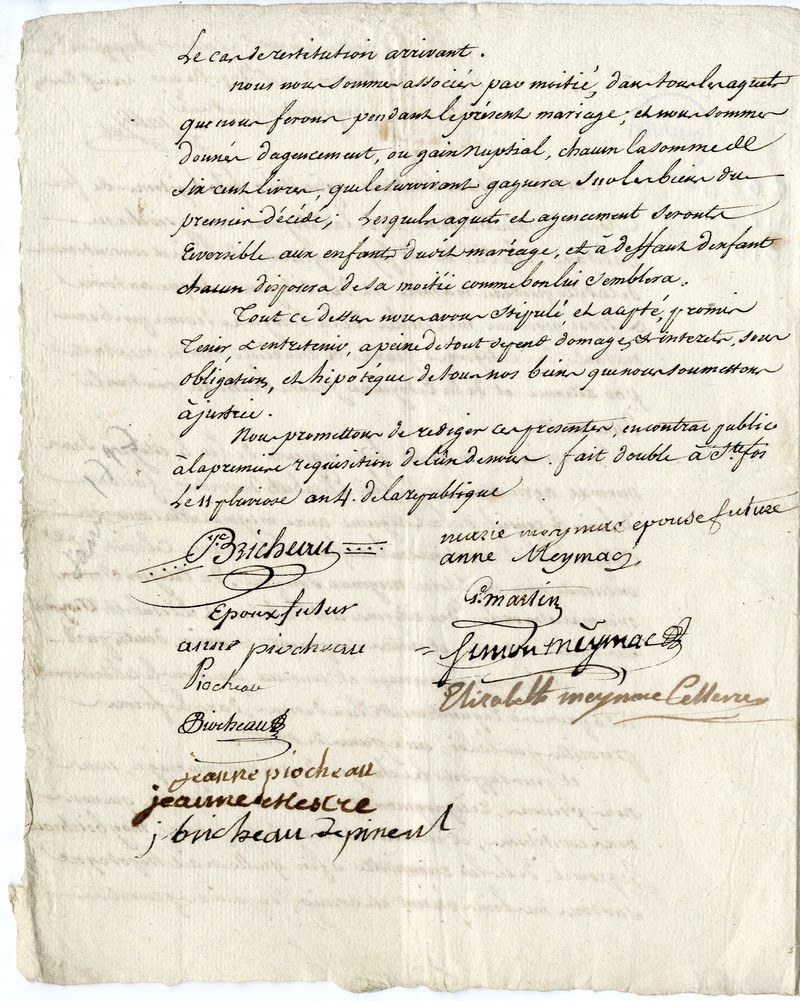 Le cas de restitution arrivant.
nous nous somme associés par moitié, dans tous les aquets
que nous ferons pendant le présent mariage; et nous somme
donnés d'agencement, ou gain nuptial, chacun la somme de
six cent livres, que le survivant gagnera sur les biens du
premier décidé; Lesquels aquets et agencement seronts
reversible aux enfants du dit mariage, et à deffaut d'enfant
chacun disposera de sa moitié comme bon lui semblera.
Tout ce dessus nous avons stipulé, et acepté, promis
tenir, & entretenir, a peine de tout depend domages & interets, sous
obligation, et hipotéque de tous nos biens que nous soumettons
à justice.
Nous promettons de rediger ces presentes, en contrat public
à la premiere requisition de l'un de nous. fait double à Ste fos
Le 11 pluviose an 4. de la republique
Bricheau
marie meymac epouse future
anne Meymac
Epoux futur
P. martin
anne piocheau
Simon meymac
Piocheau
Elizabeth meymac
jeanne piocheau
jeanne
j bricheau